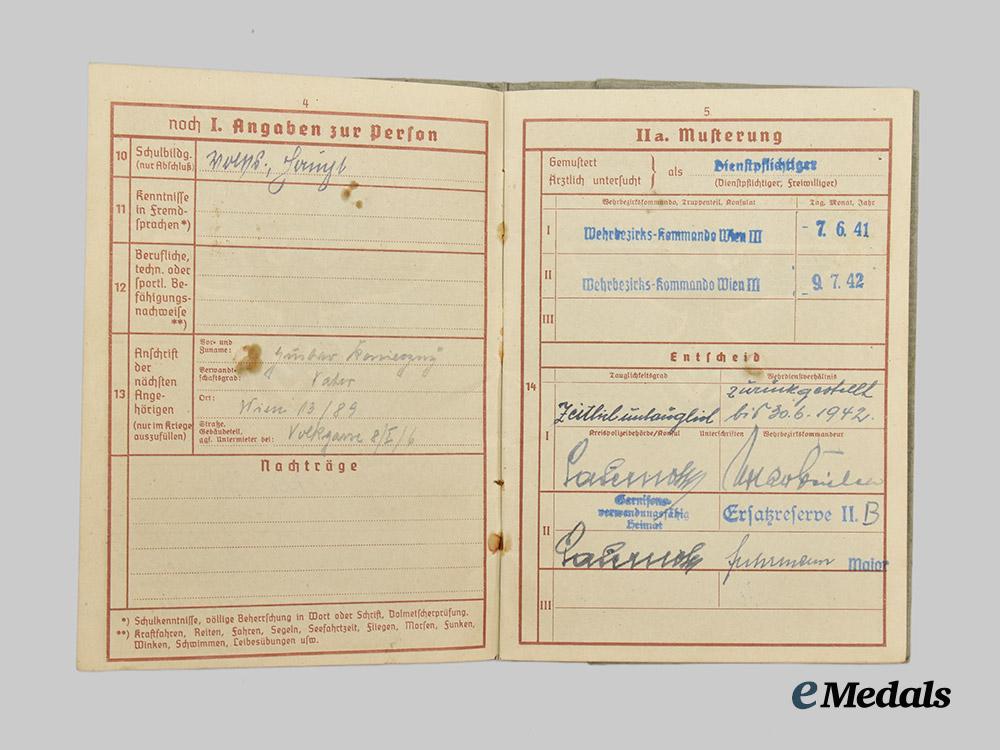 4
noch I. Angaben zur Person
10 Schulbildg. (nur Abschluß)
Volks., Haupt
11 Kenntnisse in Fremd-
sprachen *)
12 Berufliche,
techn. oder
sportl. Be-
fähigungs-
nachweise
**)
13 Anschrift
der
nächsten
Ange-
hörigen
(nur im Kriege
auszufüllen)
Vor- und
Zuname: Gustav
Verwandt-
schaftsgrad: Vater
Ort: Wien 13/89
Straße,
Gebäudeteil,
ggf. Untermieter bei: Volkgasse 8/I/6
Nachträge
*) Schulkenntnisse, völlige Beherrschung in Wort oder Schrift, Dolmetscherprüfung.
**) Kraftfahren, Reiten, Fahren, Segeln, Seefahrtzeit, Fliegen, Morsen, Funken,
Winken, Schwimmen, Leibesübungen usw.
5
IIa. Musterung
Gemustert
Ärztlich untersucht } als Dienstpflichtiger
(Dienstpflichtiger, Freiwilliger)
Wehrbezirkskommando, Truppenteil, Konsulat Tag, Monat, Jahr
I Wehrbezirks-Kommando Wien III - 7. 6. 41
II Wehrbezirks-Kommando Wien III 9. 7. 42
III
Entscheid
14 Tauglichkeitsgrad Wehrdienstverhältnis
Zeitlich untauglich zurückgestellt
bis 30.6.1942.
I Kreispolizeibehörde/Konsul Unterschriften Wehrbezirkskommandeur
II Garnisons-
verwendungsfähig
Heimat
Ersatzreserve II. B
Fuhrmann Major
III
eMedals